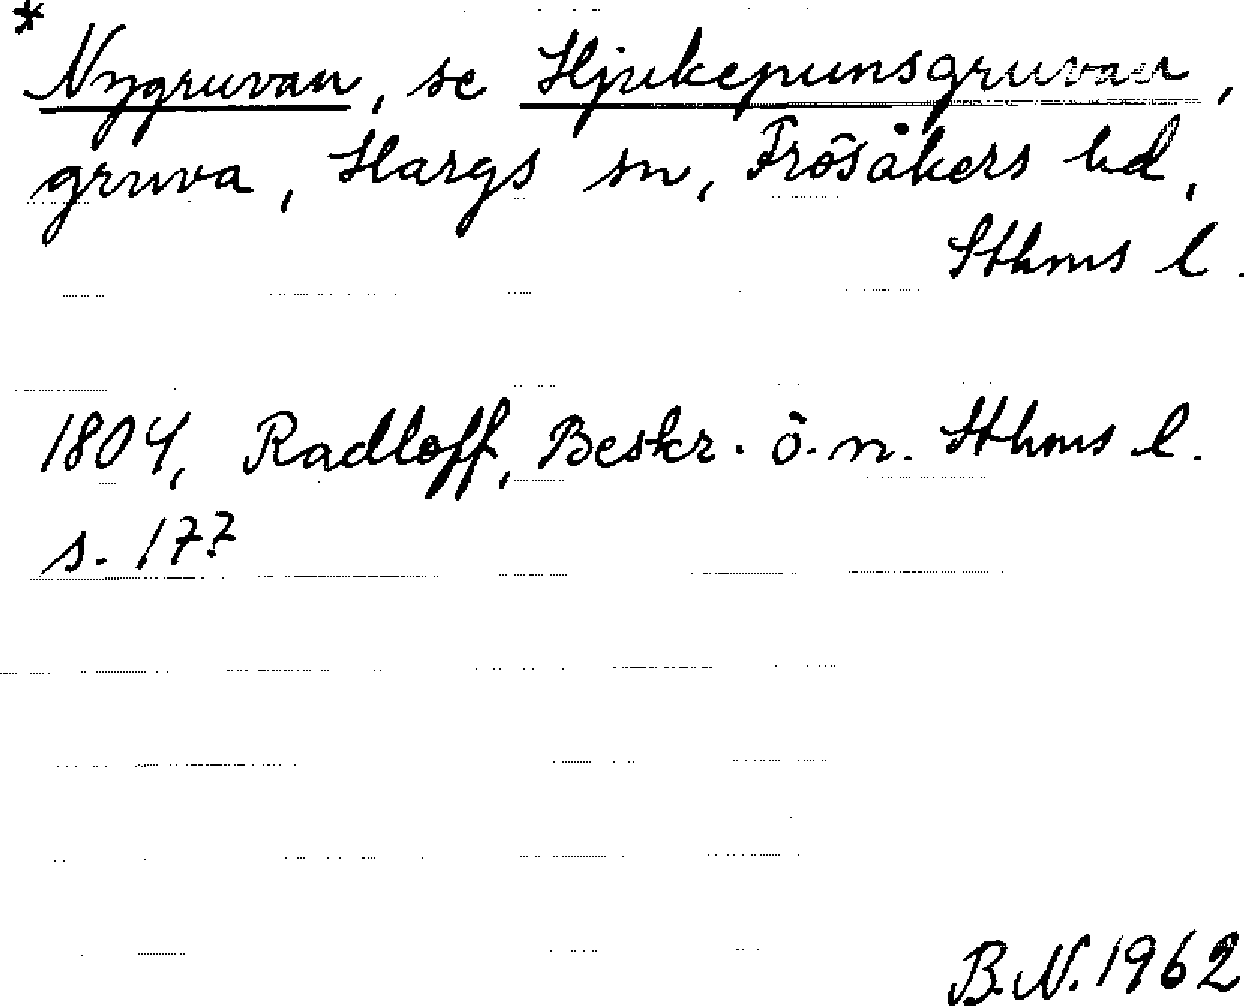 * Nygruvan, se Hjukepunsgruvan,
gruva, Hargs sn, Frösåkers hd,
Sthms l.
1804, Radloff, Beskr. ö. n. Sthms l.
s. 177
B.N. 1962